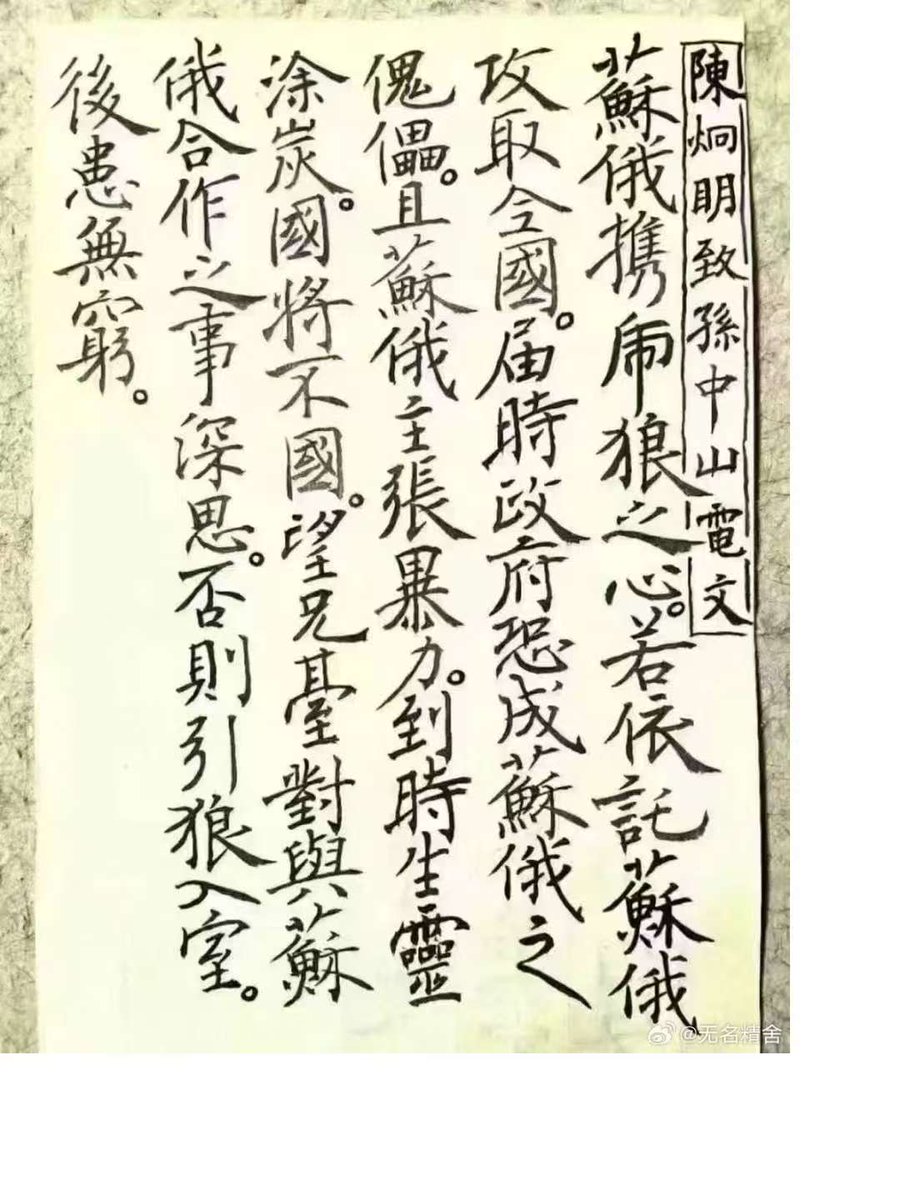 陳炯明致孫中山電文
蘇俄携虎狼之心。若依託蘇俄
攻取全國。届時政府恐成蘇俄之
傀儡。且蘇俄主張暴力。到時生靈
涂炭。國將不國。望兄臺對與蘇
俄合作之事深思。否則引狼入室。
後患無窮。
@无名精舍